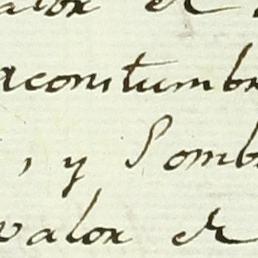 valor de
aconstumbr
, y Somb
valor de